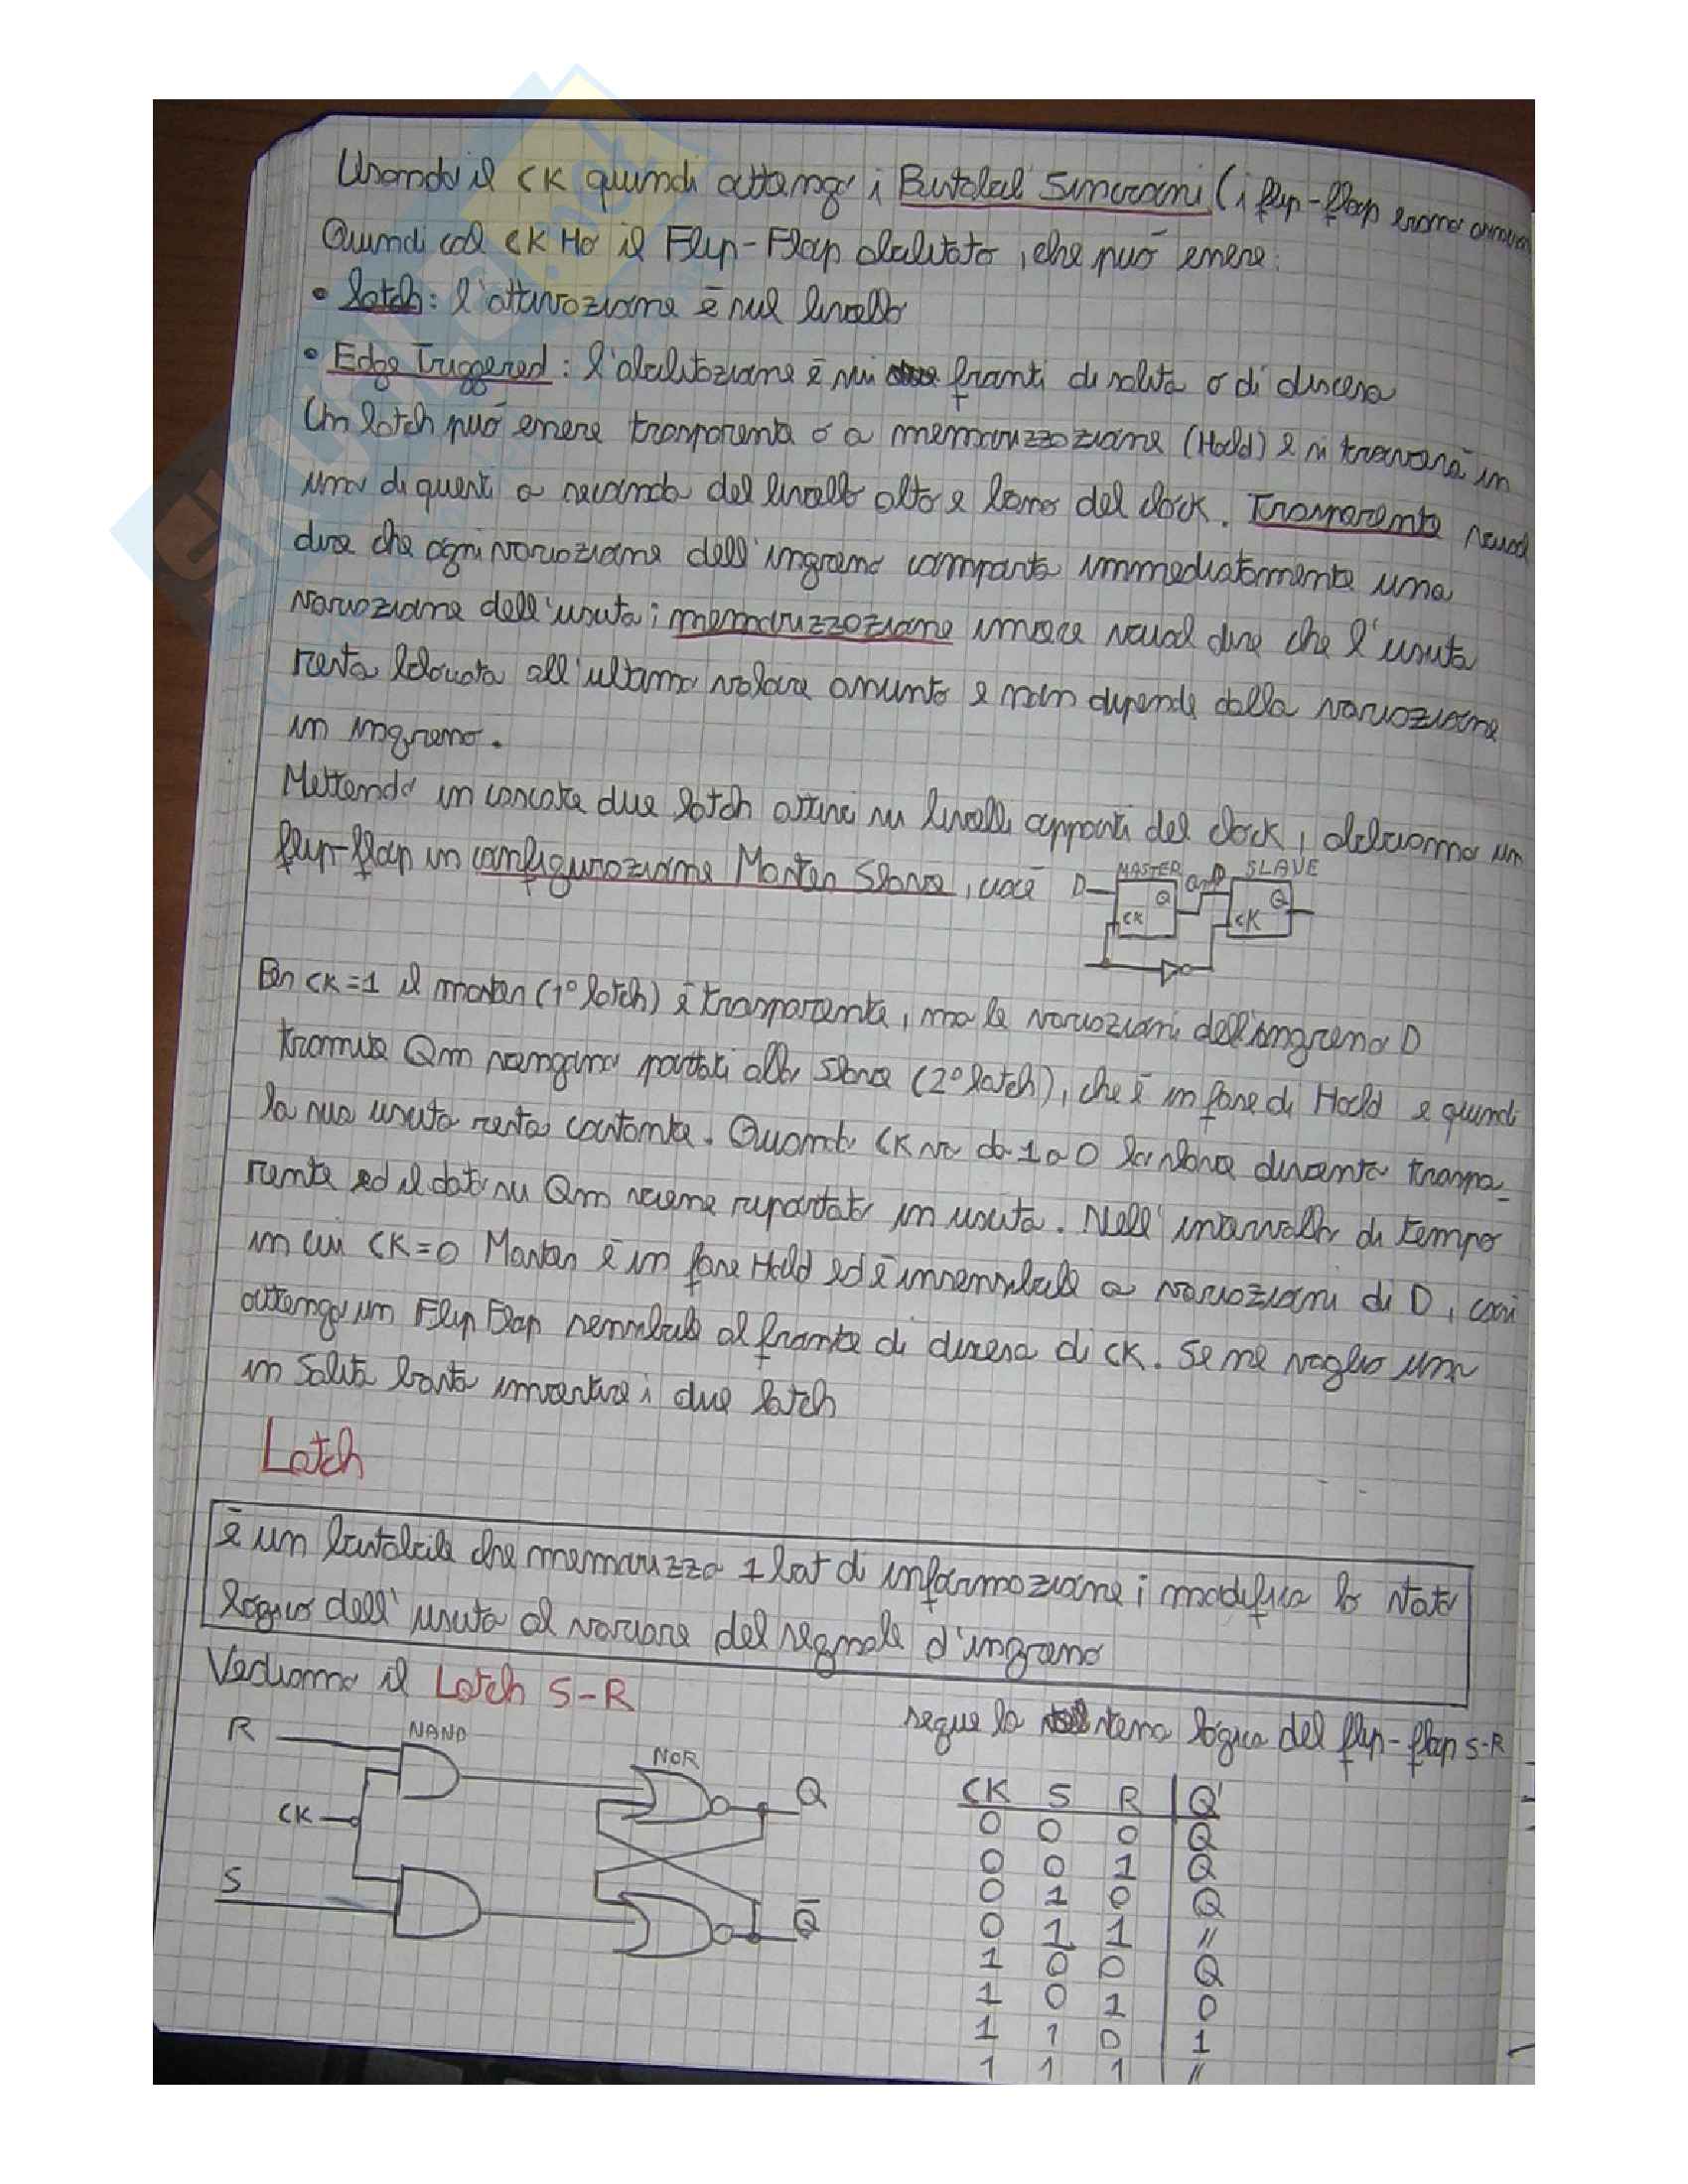 Usando il CK quindi ottengo i Bistabili Sincroni (i flip-flop erano
Quindi col CK Ho il Flip-Flop abilitato, che può essere:
• latch: l'attivazione è sul livello
• Edge Triggered: l'abilitazione è sui fronti di salita o di discesa
Un latch può essere trasparente o a memorizzazione (Hold) e si troverà in
uno di questi a seconda del livello alto e basso del clock. Trasparente vuol
dire che ogni variazione dell'ingresso comporta immediatamente una
variazione dell'uscita; memorizzazione invece vuol dire che l'uscita
resta bloccata all'ultimo valore assunto e non dipende dalla variazione
in ingresso.
Mettendo in cascata due latch attivi su livelli opposti del clock, abbiamo un
flip-flop in configurazione Master Slave, cioè
MASTER Qm D SLAVE
D Q Q
CK CK
Con CK=1 il master (1° latch) è trasparente, ma le variazioni dell'ingresso D
tramite Qm vengono portati allo Slave (2° latch), che è in fase di Hold e quindi
la sua uscita resta costante. Quando CK va da 1 a 0 lo slave diventa traspa-
rente ed il dato su Qm viene riportato in uscita. Nell'intervallo di tempo
in cui CK=0 Master è in fase Hold ed è insensibile a variazioni di D, così
ottengo un Flip Flop sensibile al fronte di discesa di CK. Se ne voglio uno
in Salita basta invertire i due latch
Latch
è un bistabile che memorizza 1 bit di informazione; modifica lo stato
logico dell'uscita al variare del segnale d'ingresso
Vediamo il Latch S-R
segue la stessa logica del flip-flop S-R
R NAND NOR Q
CK
S Q̅
CK S R Q'
0 0 0 Q
0 0 1 Q
0 1 0 Q
0 1 1 //
1 0 0 Q
1 0 1 0
1 1 0 1
1 1 1 //